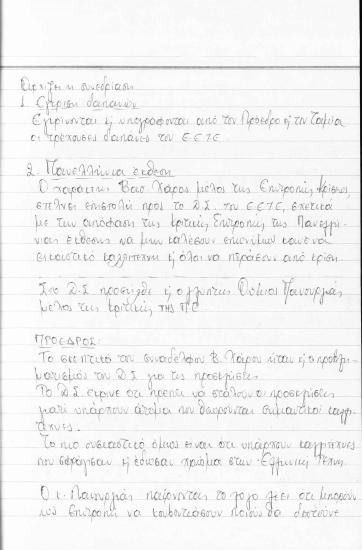 Αρχίζει η συνεδρίαση
1. Εγκριση δαπανών
Εγκρίνονται ϗ υπογράφονται από τον Πρόεδρο ϗ τον Ταμία
οι τρέχουσες δαπάνες του ΕΕΤΕ
2. Πανελλήνια έκθεση
Ο χαράκτης Βασ. Χάρος μέλος της Επιτροπής Κρίσεως,
στέλνει επιστολή προς το Δ.Σ. του ΕΕΤΕ, σχετικά
με την απόφαση της κριτικής Επιτροπής της Πανελλή-
νιας έκθεσης να μην καλέσουν επωνύμως κανένα
εικαστικό καλλιτέχνη ϗ όλοι να περάσουν από κρίση.
Στο Δ.Σ προσήλθε ϗ ο γλύπτης Θύμιος Πανουργιάς
μέλος της κριτικής της Π.Ε
ΠΡΟΕΔΡΟΣ:
Το σκεπτικό του συναδέλφου Β. Χάρου ήταν ϗ ο προβλη-
ματισμός του Δ.Σ για τις προσκλήσεις.
Το Δ.Σ έκρινε ότι πρέπει να σταλούν οι προσκλήσεις
γιατί υπάρχουν άτομα που θεωρούνται σημαντικοί καλλι-
τέχνες.
Το πιο ουσιαστικό όμως είναι ότι υπάρχουν καλλιτέχνες
που ϗ έδωσαν χρώμα στην Ελληνική Τέχνη.
Ο κ. Πανουργιάς παίρνοντας το λόγο λέει ότι μπορούν
στην επιτροπή να κουβεντιάσουν ποιοι θα